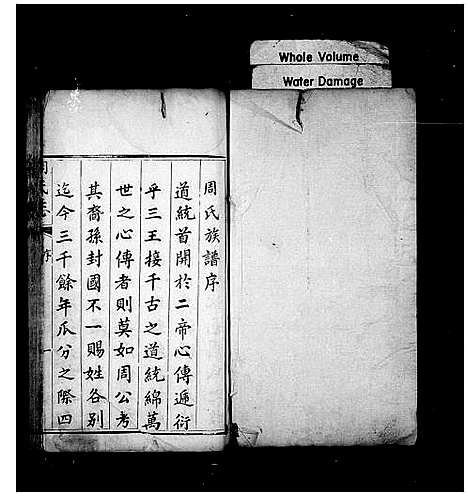 Whole Volume
Water Damage
周氏族譜序
道統首開於二帝心傳遞衍
乎三王接千古之道統綿萬
世之心傳者則莫如周公考
其裔孫封國不一賜姓各別
迄今三千餘年瓜分之際四
序
一